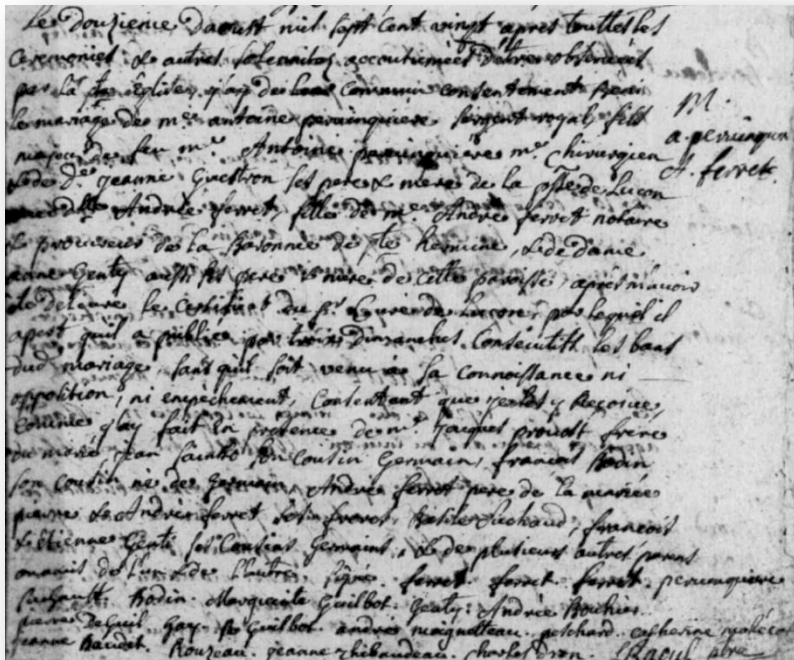 Le douzieme daoust mil sept cent vingt apres touttes les
Ceremonies & autres solennitez accoutumées detre observées
par la ste eglise, j'ay de leur commun consentement beni
le mariage de mr antoine peruinquiere sergent royal, fils
majeur de feu mr Antoine peruinquiere mr chirurgien
& de de Jeanne Guestron ses pere & mere de la psse de Luçon
avec dlle Andrée ferret, fille de mr André ferret notaire
& procureur de la Baronnie de ste hermine, & de dame
anne Genty aussi ses pere & mere de cette paroisse, apres m'avoir
été delivré le Certificat du sr Curé de Luçon, par lequel il
apert quil a publié par trois dimanches Consecutifs les bans
dud mariage sans quil soit venu a sa connoissance ni
opposition, ni empechement, Consentant que je les y Reçoive,
Comme j'ay fait En presence de mr Jacques prouost frere
du marié, jean son Cousin Germain, francois Bodin
son Cousin né de Germain, André ferret pere de la mariée
pierre & André ferret ses freres, Basile, francois
& Etienne Genti ses Cousins Germains, & de plusieurs autres parens
ou amis de l'un & de l'autre, signé. ferret. ferret. ferret. peruinquiere
Bodin. Marguerite Guilbot. Genty. Andrée
pierre Gay. Guilbot. andré. catherine
jeanne Baudet. Rouzeau. jeanne thibaudeau. Charles Dron. Raoul, ptre
M.
a. peruinquiere
A. ferret.